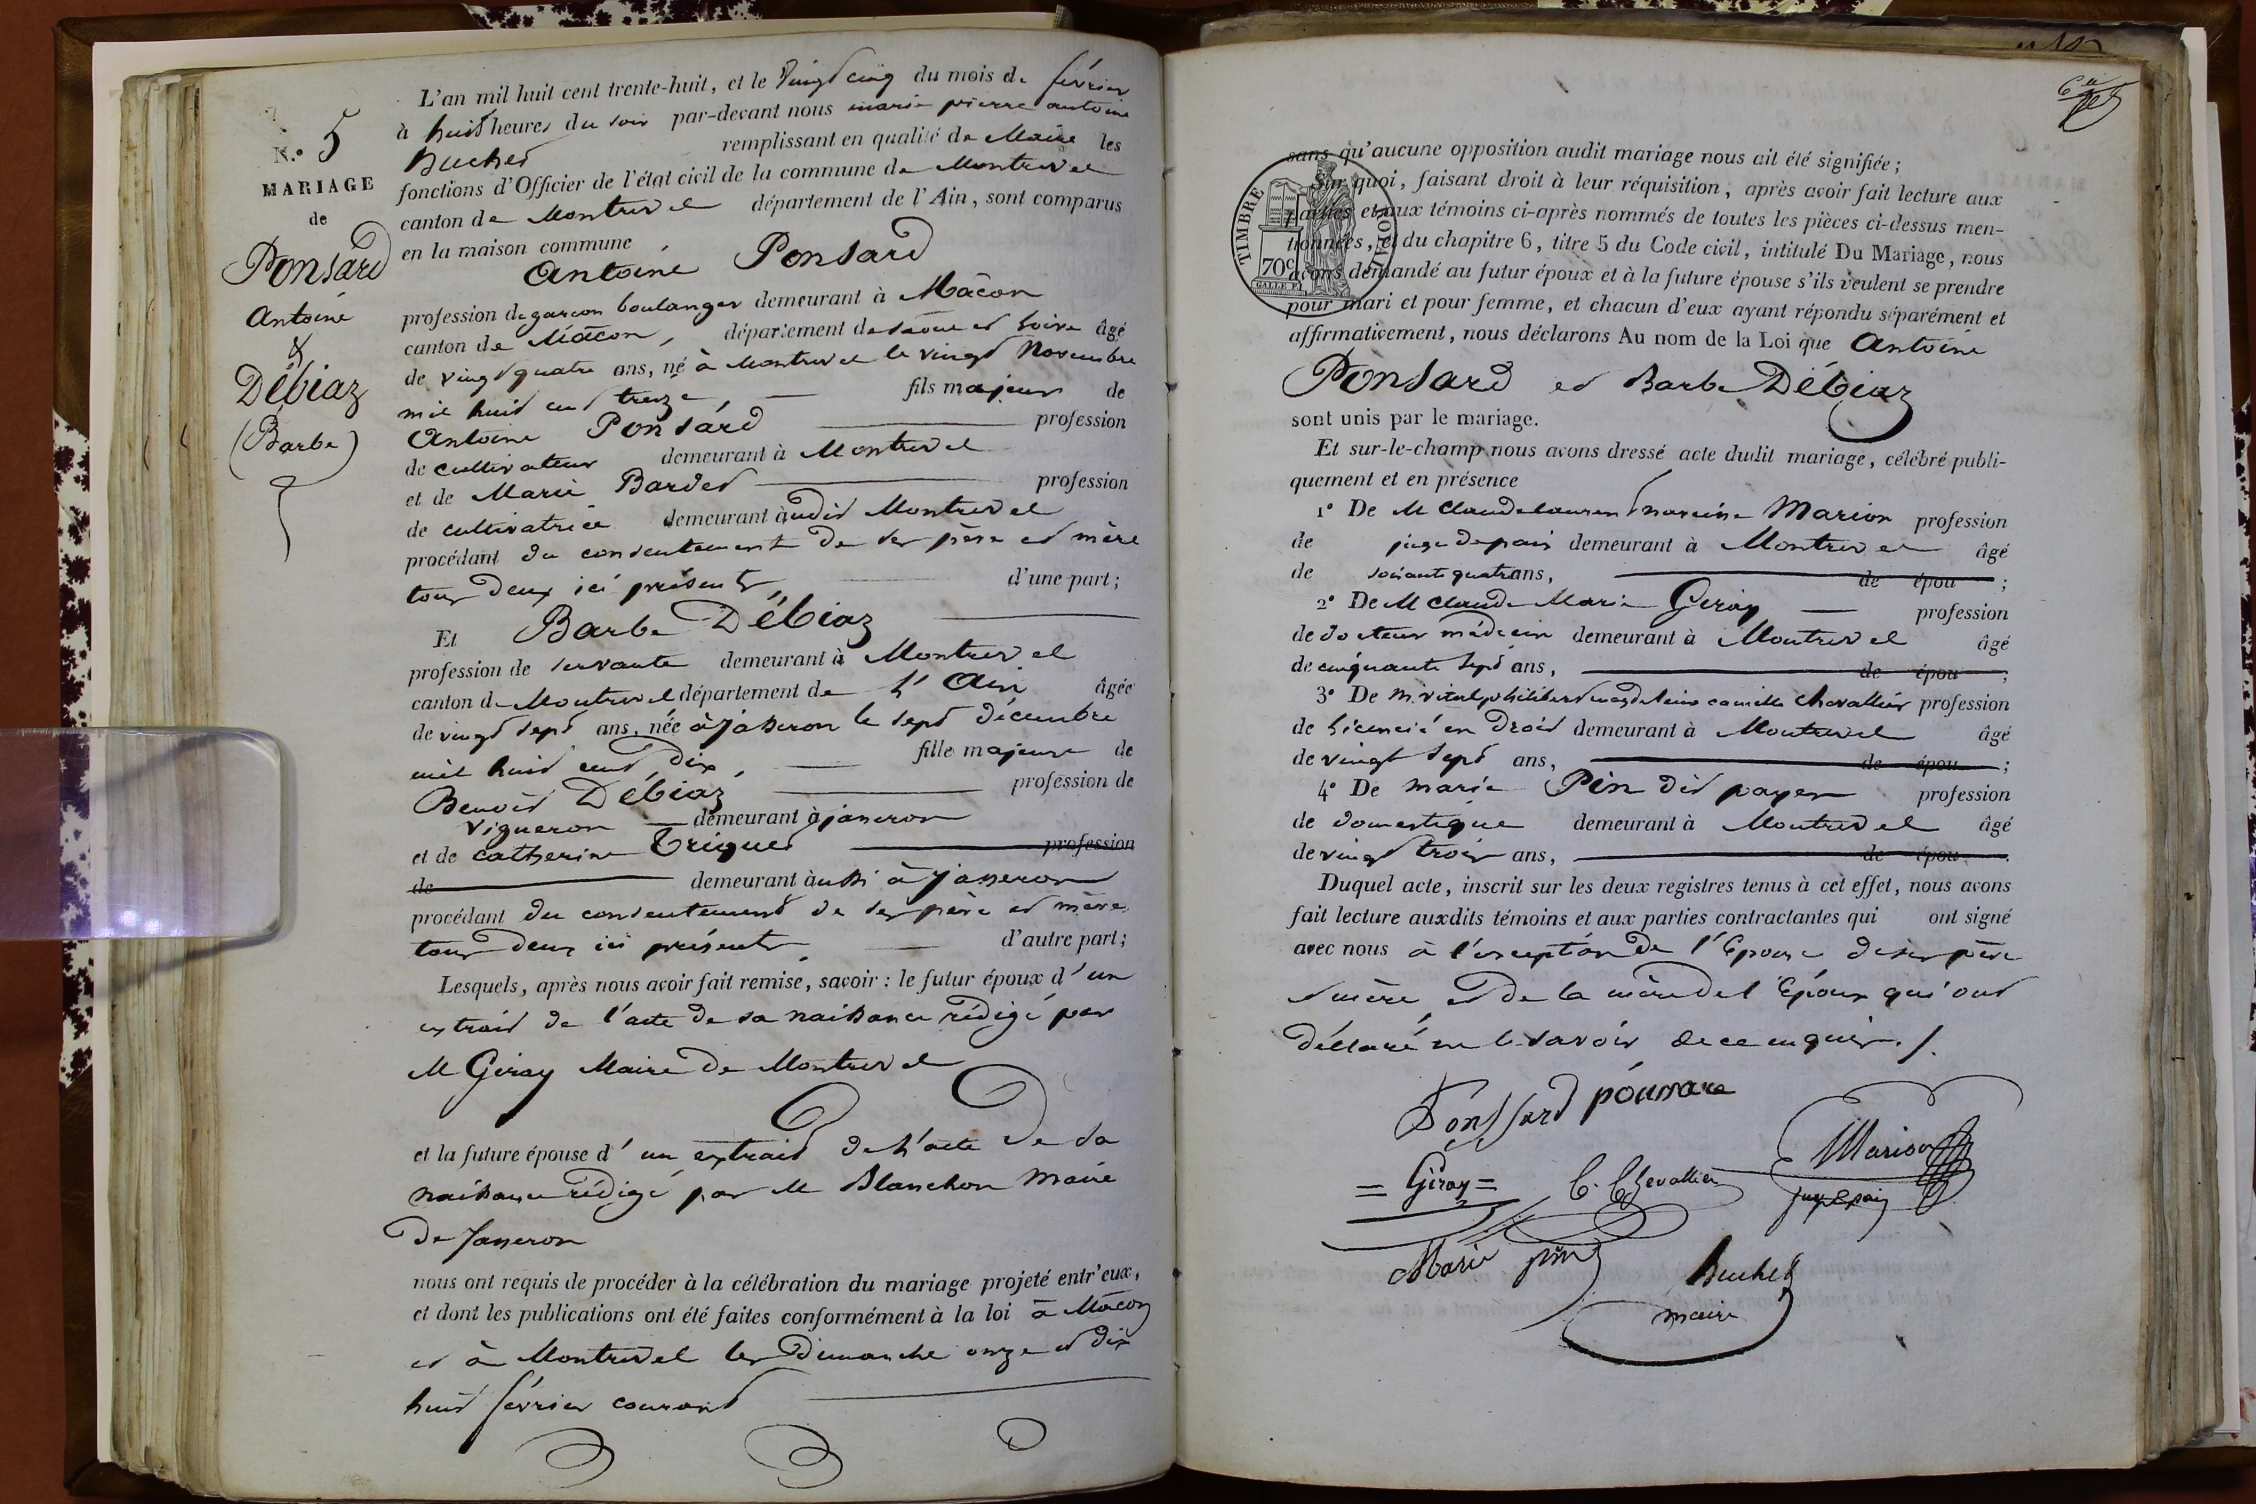 N.º 5
MARIAGE
de
Ponsard
Antoine
&
Débiaz
(Barbe)
L'an mil huit cent trente-huit, et le vingt cinq du mois de février
à huit heures du soir par-devant nous marie pierre antoine
Buchet remplissant en qualité de Maire les
fonctions d'Officier de l'état civil de la commune de Montrevel
canton de Montrevel département de l'Ain, sont comparus
en la maison commune
Antoine Ponsard
profession de garcon boulanger demeurant à Mâcon
canton de Mâcon, département de saône et loire âgé
de vingt quatre ans, né à Montrevel le vingt Novembre
mil huit cent treize, fils majeur de
Antoine Ponsard profession
de cultivateur demeurant à Montrevel
et de Marie Bardet profession
de cultivatrice demeurant àudit Montrevel
procédant du consentement de ses père et mère
tous deux ici présents, d'une part;
Et Barbe Débiaz
profession de servante demeurant à Montrevel
canton de Montrevel département de l'Ain âgée
de vingt sept ans, née à Jasseron le sept décembre
mil huit cent dix, fille majeure de
Benoit Débiaz profession de
vigneron demeurant à jasseron
et de catherine Triquet profession
de demeurant àussi à Jasseron
procédant du consentement de ses père et mère
tous deux ici présents, d'autre part;
Lesquels, après nous avoir fait remise, savoir : le futur époux d'un
extrait de l'acte de sa naissance rédigé par
M Giray Maire de Montrevel
et la future épouse d'un extrait de l'acte de sa
naissance rédigé par M Blanchon Maire
de Jasseron
nous ont requis de procéder à la célébration du mariage projeté entr'eux,
et dont les publications ont été faites conformément à la loi à Mâcon
et à Montrevel les Dimanche onze et dix
huit février courant
sans qu'aucune opposition audit mariage nous ait été signifiée;
Sur quoi, faisant droit à leur réquisition, après avoir fait lecture aux
parties et aux témoins ci-après nommés de toutes les pièces ci-dessus men-
tionnées, et du chapitre 6, titre 5 du Code civil, intitulé Du Mariage, nous
avons demandé au futur époux et à la future épouse s'ils veulent se prendre
pour mari et pour femme, et chacun d'eux ayant répondu séparément et
affirmativement, nous déclarons Au nom de la Loi que Antoine
TIMBRE ROYAL
70c
Ponsard et Barbe Débiaz
sont unis par le mariage.
Et sur-le-champ nous avons dressé acte dudit mariage, célébré publi-
quement et en présence
1º De M Claude laurent narcisse Marion profession
de juge de paix demeurant à Montrevel âgé
de soixante quatre ans, de épou ;
2º De M Claude Marie Giray profession
de docteur médecin demeurant à Montrevel âgé
de cinquante sept ans, de épou ;
3º De m. vital philibert magdeleine camille Chevallier profession
de licencié en Droit demeurant à Montrevel âgé
de vingt sept ans, de épou ;
4º De marie Pin dit payen profession
de domestique demeurant à Montrevel âgé
de vingt trois ans, de épou .
Duquel acte, inscrit sur les deux registres tenus à cet effet, nous avons
fait lecture auxdits témoins et aux parties contractantes qui ont signé
avec nous à l'exception de l'Epouse de ses père
et mère, et de la mère de l'Epoux qui ont
déclaré ne le savoir de ce enquis./.
Ponssard ponssare
Marion
= Giray = C. Chevallier juge de paix
Marie pin Buchet
maire